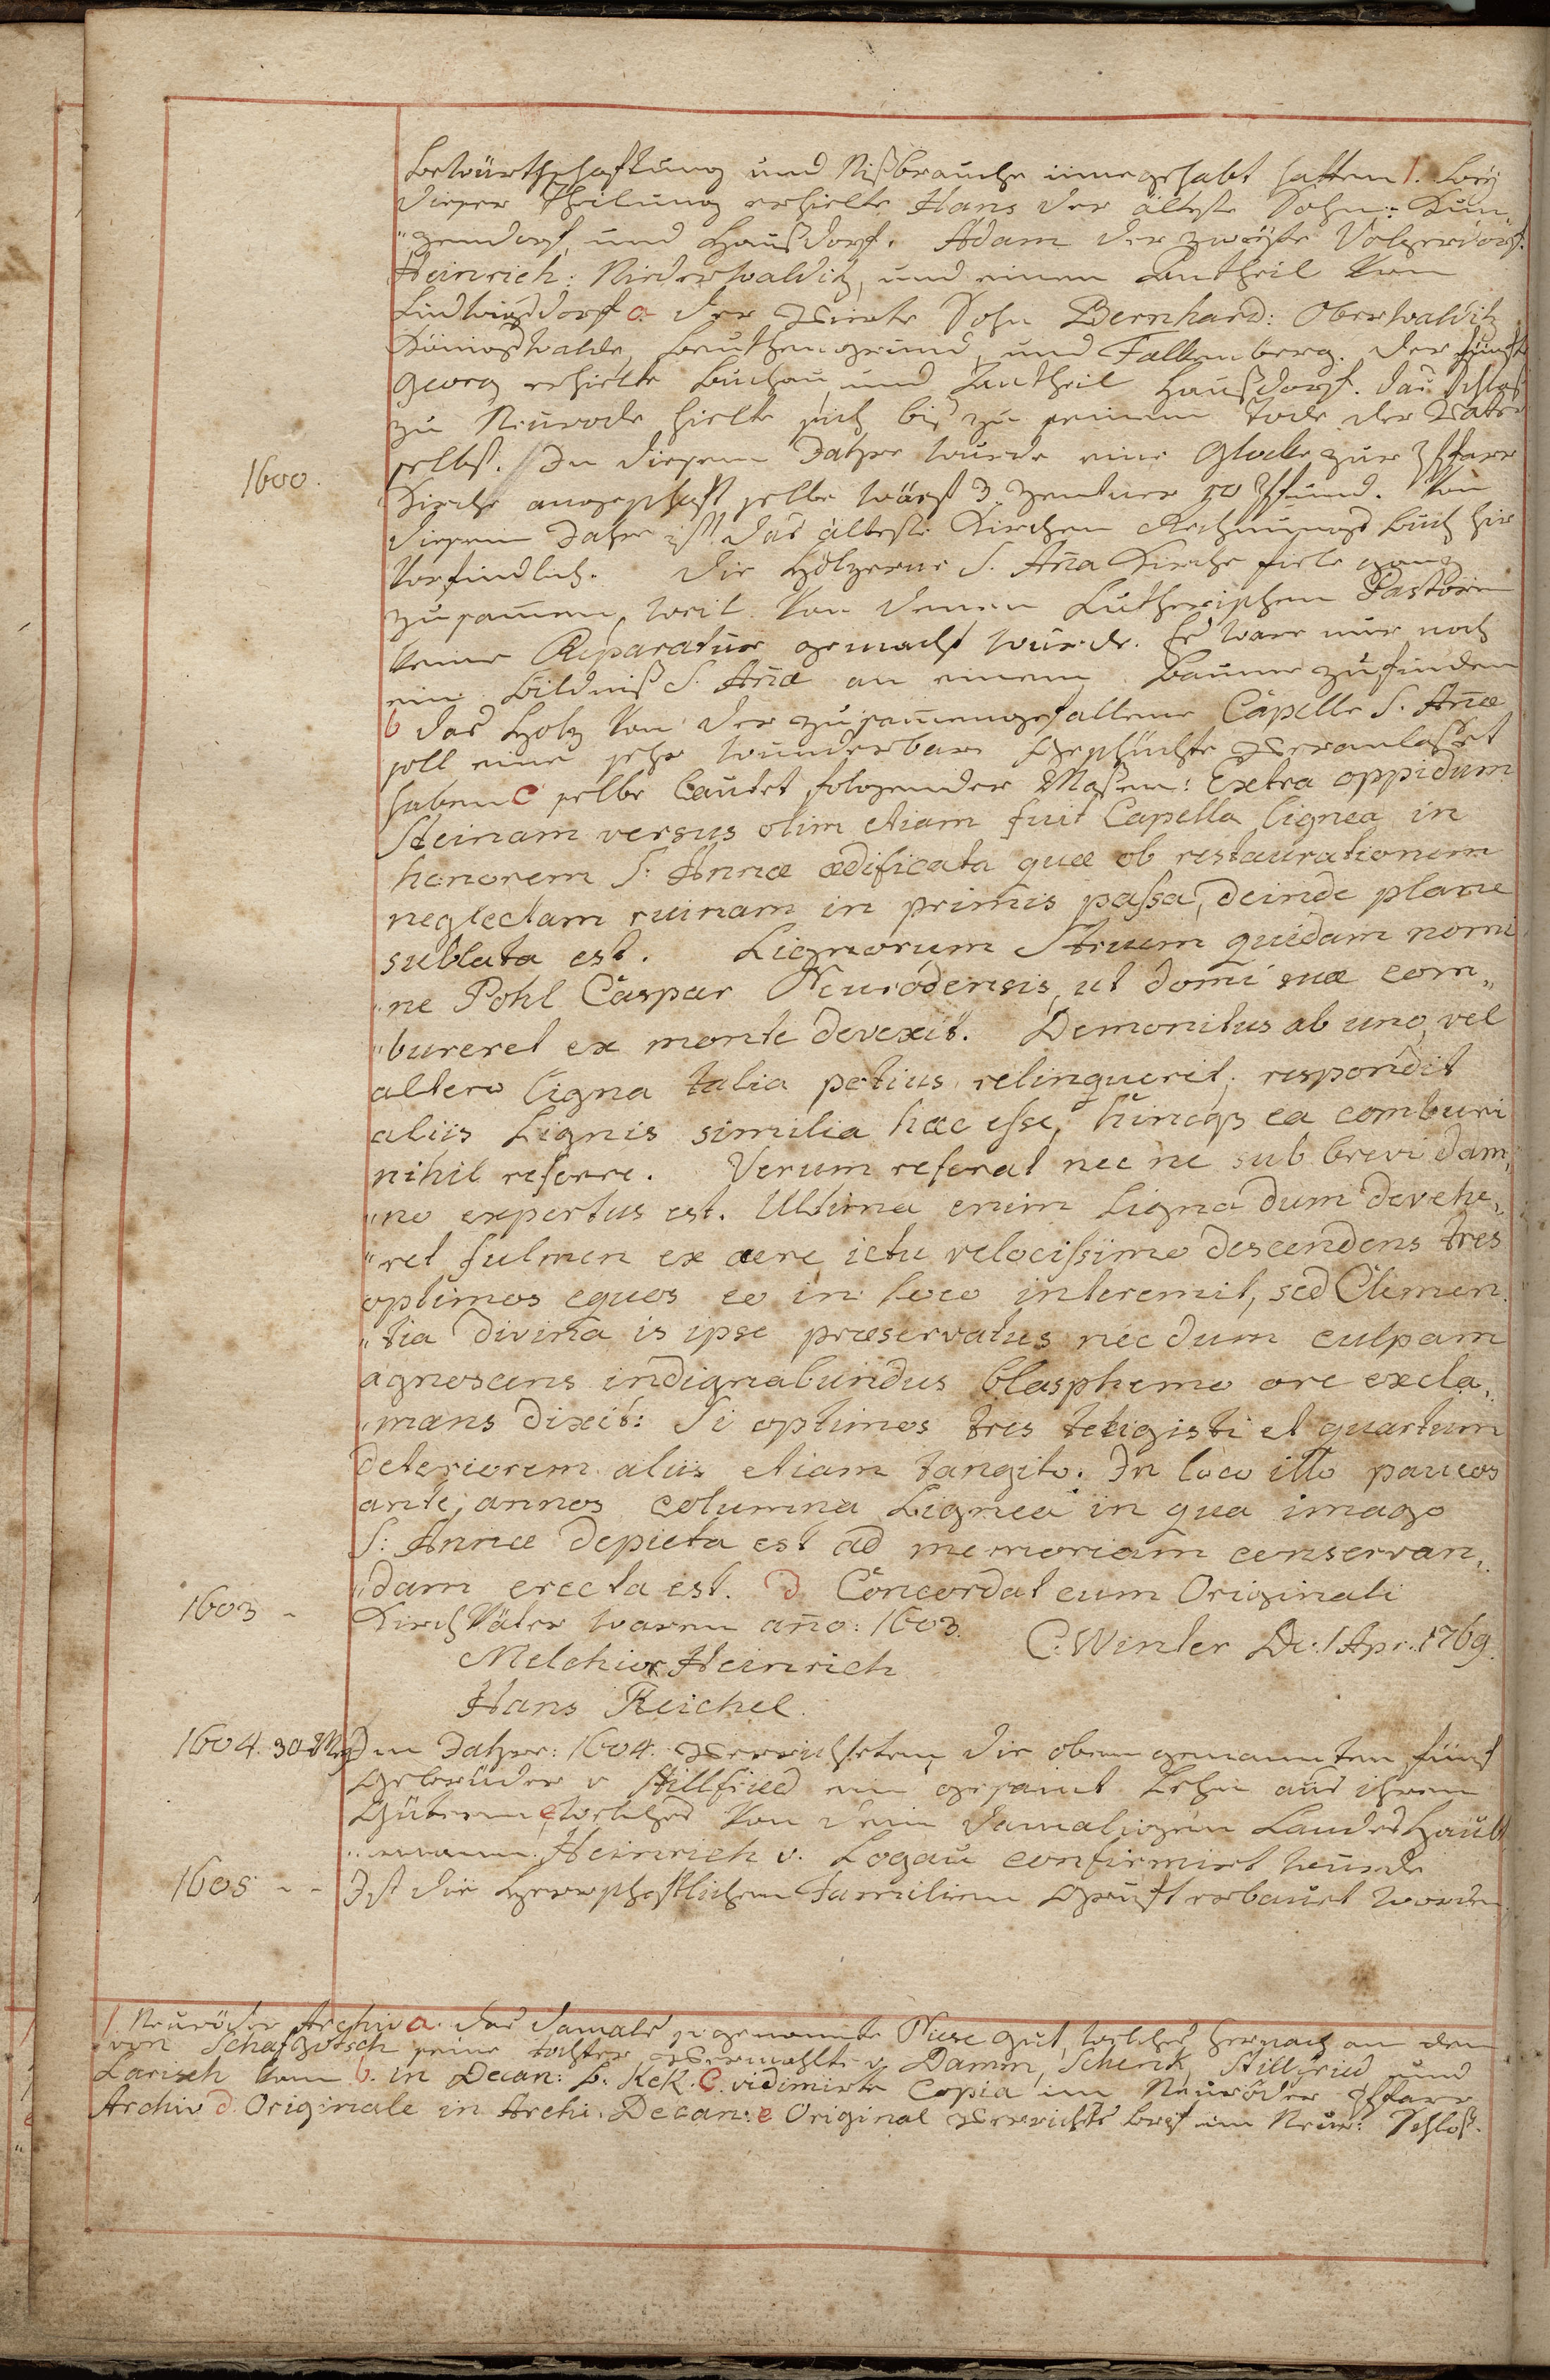 bewürthschaftung und Nißbrauche innegehabt hatten f. bey
dieser Theilung erhielte Hans der älteste Sohn: Kun„
„zendorf, und Haußdorf. Adam der zweyte Volperdorf.
Heinrich: Niederwalditz, und einen Antheil von
Ludwigsdorf a. der Vierte Sohn Bernhard: Oberwalditz
Königswalde, Beuthengrund, und Falkenberg. der fünfte
Georg erhielte Buchau, und Antheil Haußdorf. das Schloß
zu Neurode hielte sich bis zu seinem Tode der Vater
1600. selbst. In diesem Jahre wurde eine Glocke zur Pfarr
Kirche angeschaft selbe wäigt 3 Zentner 50 Pfund. Von
diesem Jahre ist das älteste Kirchen Rechnungs Buch hir
Vorfindlich. Die Hölzerne S. Aña Kirche fiele ganz
zusam̄en, weil von denen Lutherischen Pastorn
keine Reparatur gemacht wurde. Es ware nur noch
ein Bildniß S. Añæ an einem Baume zufinden
b das Holz von der zusam̄engefallene Capelle S. Añæ
soll eine sehr wunderbare Geschichte Veranlasset
haben c selbe lautet folgender Maßen: Extra oppidum
Steinam versus olim etiam fuit Capella lignea in
honorem S: Annæ ædificata quæ ob restaurationem
neglectam ruinam in primis passa, deinde plane
sublata est. Lignorum Struem quidam nomi
„ne Pohl Caspar Neurodensis, ut domi suæ com„
„bureret ex monte devexit. Demonitus ab uno, vel
altero ligna talia potius relinquerit, respondit
aliis Lignis similia hæc esse, hincq3 ea comburi
nihil referre. Verum referat nec ne sub brevi dam„
„no expertus est. Ultima enim Ligna dum devehe„
„ret fulmen ex aere ictu velocissimo descendens tres
optimos equos eo in loco interemit, sed Clemen„
„tia divina is ipse præservatus nec dum culpam
agnoscens indignabundus blasphemo ore excla„
„mans dixit: Si optimos tres tetigisti et quartum
deteriorem aliis etiam tangito. In loco illo paucos
ante, annos columna Lignea in qua imago
S: Annæ depicta est ad memoriam conservan„
„dam erecta est. d Concordat cum Originali
1603 - KirchVäter waren año: 1603. C. Winter De: 1 Apr. 1769.
Melchior Heinrich
Hans Reichel.
1604. 30 Im Jahre: 1604. Verrichteten die oben genannten fünf
Gebrüder v Stillfried ein gesamt Lehn aus ihren
Güttern e welches von dem damaligen Landes Haubt
„mann Heinrich v. Logau confirmirt wurde
1605 - - Ist die Herrschaftlichen Familien Gruft erbauet worden
f. Neuröder Archiv a. das damals so genannte Niese gut, welches hernach an den
von Schafgotsch seine tochter Vermählte v Damm, Schenk, Stillfried und
Larisch kam b. in Decan: B. Kck. c. vidimirte Copia im Neuröder Pfarr
Archiv d Originale in Archi. Decan: e Original Verrichts brief im Neur: Schloß.